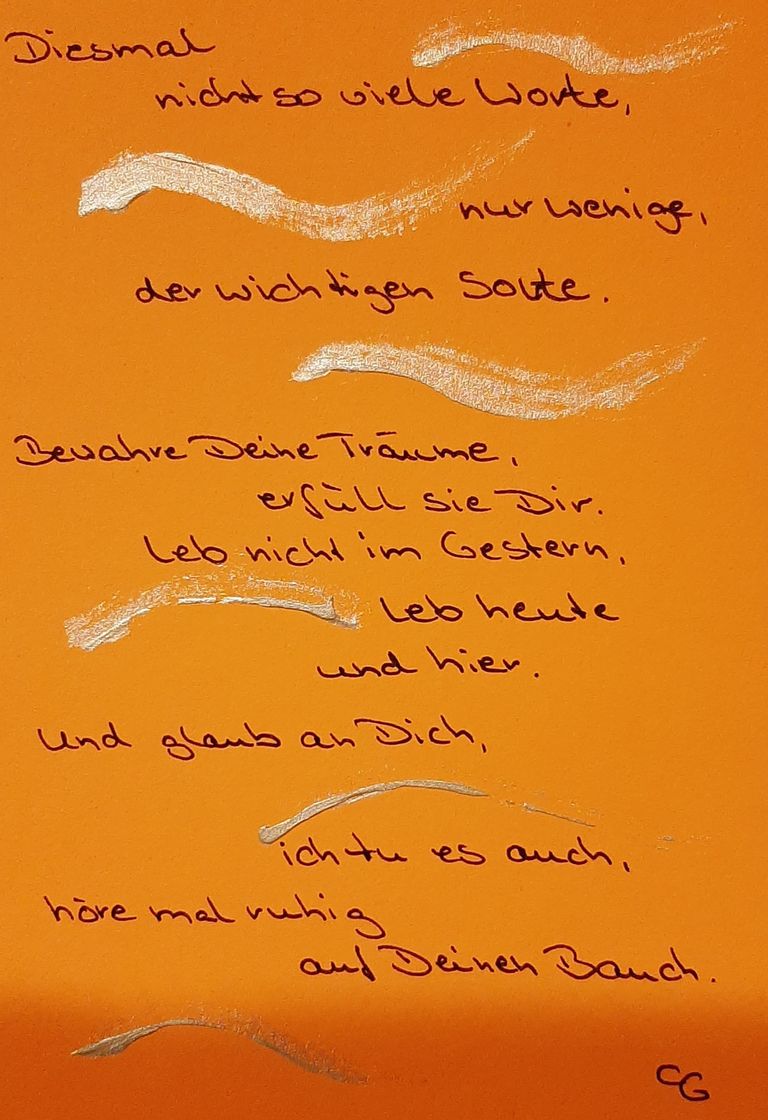 Diesmal
nicht so viele Worte,
nur wenige,
der wichtigen Sorte.
Bewahre Deine Träume,
erfüll sie Dir.
Leb nicht im Gestern,
leb heute
und hier.
Und glaub an Dich,
ich tu es auch,
höre mal ruhig
auf Deinen Bauch.
CG